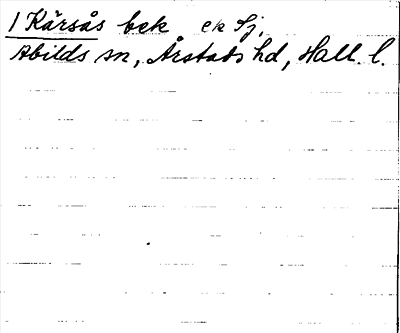 1 Kärsås bek ek Sj,
Abilds sn, Årstads hd, Hall. l.